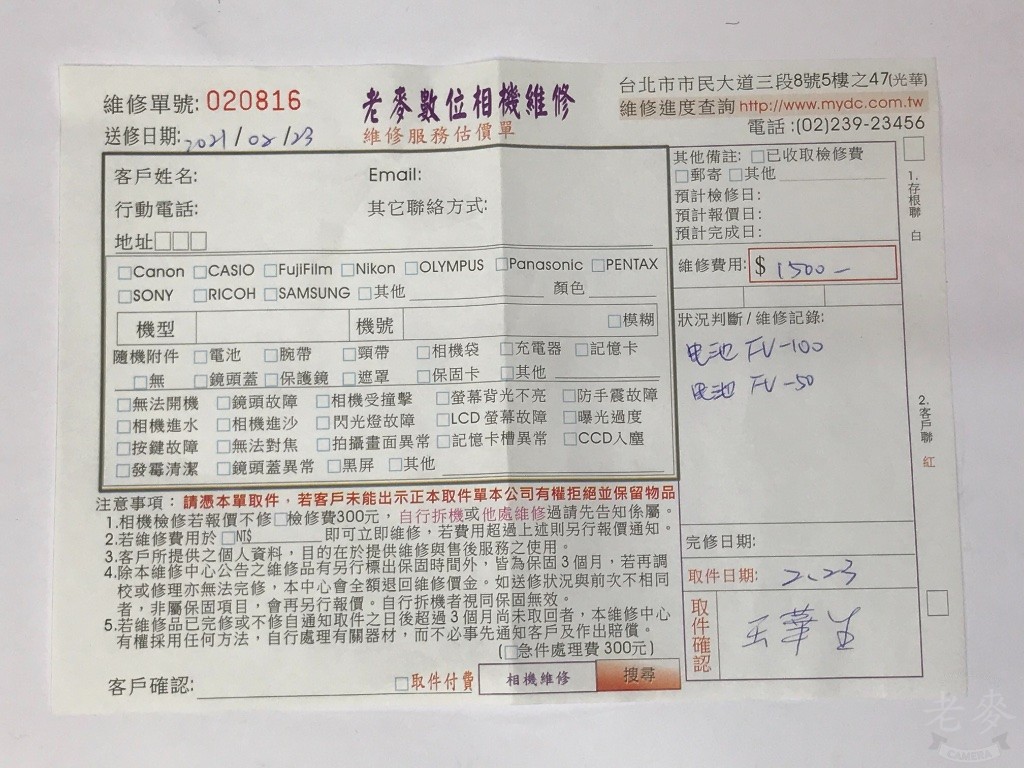 維修單號: 020816
老麥數位相機維修
維修服務估價單
台北市市民大道三段8號5樓之47(光華)
維修進度查詢 http://www.mydc.com.tw
電話:(02)239-23456
送修日期: 2021/02/23
客戶姓名: Email:
行動電話: 其它聯絡方式:
地址□□□
□Canon □CASIO □FujiFilm □Nikon □OLYMPUS □Panasonic □PENTAX
□SONY □RICOH □SAMSUNG □其他 顏色
機型 機號 □模糊
隨機附件 □電池 □腕帶 □頸帶 □相機袋 □充電器 □記憶卡
□無 □鏡頭蓋 □保護鏡 □遮罩 □保固卡 □其他
□無法開機 □鏡頭故障 □相機受撞擊 □螢幕背光不亮 □防手震故障
□相機進水 □相機進沙 □閃光燈故障 □LCD螢幕故障 □曝光過度
□按鍵故障 □無法對焦 □拍攝畫面異常 □記憶卡槽異常 □CCD入塵
□發霉清潔 □鏡頭蓋異常 □黑屏 □其他
其他備註: □已收取檢修費
□郵寄 □其他
預計檢修日:
預計報價日:
預計完成日:
維修費用: $ 1500-
狀況判斷/維修記錄:
电池 FV-100
电池 FV-50
完修日期:
取件日期: 2.23
取件確認
1.存根聯 白
2.客戶聯 紅
注意事項:請憑本單取件,若客戶未能出示正本取件單本公司有權拒絕並保留物品
1.相機檢修若報價不修□檢修費300元,自行拆機或他處維修過請先告知係屬。
2.若維修費用於□NT$ 即可立即維修,若費用超過上述則另行報價通知。
3.客戶所提供之個人資料,目的在於提供維修與售後服務之使用。
4.除本維修中心公告之維修品有另行標出保固時間外,皆為保固3個月,若再調
校或修理亦無法完修,本中心會全額退回維修價金。如送修狀況與前次不相同
者,非屬保固項目,會再另行報價。自行拆機者視同保固無效。
5.若維修品已完修或不修自通知取件之日後超過3個月尚未取回者,本維修中心
有權採用任何方法,自行處理有關器材,而不必事先通知客戶及作出賠償。
(□急件處理費300元)
客戶確認: □取件付費 相機維修 搜尋
老麥
CAMERA